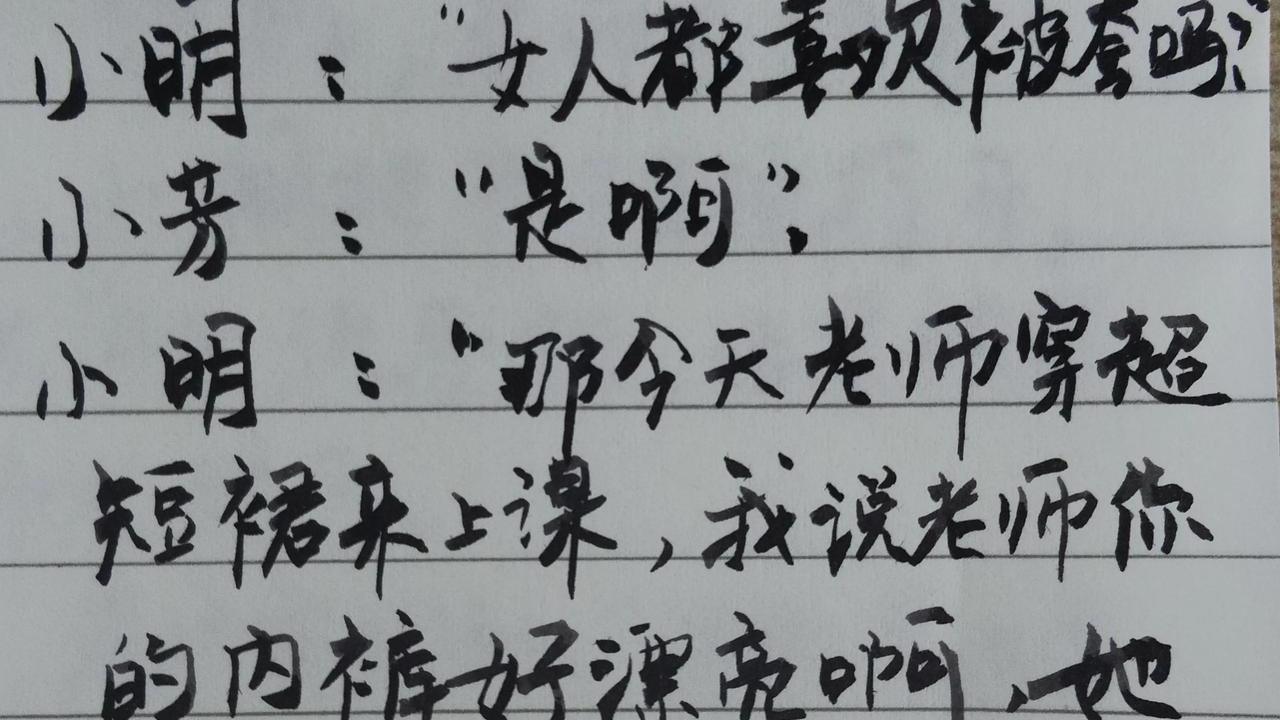 小明："女人都喜欢被套吗？"
小芳："是啊"。
小明："那今天老师穿超
短裙来上课，我说老师你
的内裤好漂亮啊，她